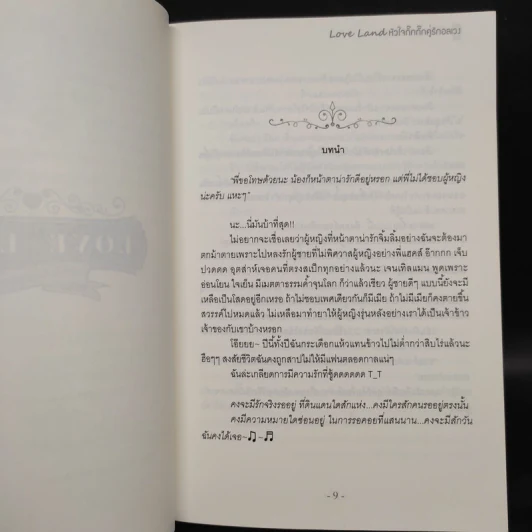 Love Land หัวใจกิ๊กกั๊กคู่รักอลเวง
บทนำ
"พี่ขอโทษด้วยนะ น้องก็หน้าตาน่ารักดีอยู่หรอก แต่พี่ไม่ได้ชอบผู้หญิง
น่ะครับ แหะๆ"
นะ...นี่มันบ้าที่สุด!!
ไม่อยากจะเชื่อเลยว่าผู้หญิงที่หน้าตาน่ารักจิ้มลิ้มอย่างฉันจะต้องมา
ตกม้าตายเพราะไปหลงรักผู้ชายที่ไม่พิศวาสผู้หญิงอย่างพี่แฮคส์ อ๊ากกก เจ็บ
ปวดดด อุตส่าห์เจอคนที่ตรงสเป็กทุกอย่างแล้วนะ เจนเทิลแมน พูดเพราะ
อ่อนโยน ใจเย็น มีเมตตาธรรมค้ำจุนโลก ก็ว่าแล้วเชียว ผู้ชายดีๆ แบบนี้ยังจะมี
เหลือเป็นโสดอยู่อีกเหรอ ถ้าไม่ชอบเพศเดียวกันก็มีเมีย ถ้าไม่มีเมียก็คงตายขึ้น
สวรรค์ไปหมดแล้ว ไม่เหลือมาทำยาให้ผู้หญิงรุ่นหลังอย่างเราได้เป็นเจ้าข้าว
เจ้าของกับเขาบ้างหรอก
โอ๊ยยย~ ปีนี้ทั้งปีฉันกระเดือกแห้วแทนข้าวไปไม่ต่ำกว่าสิบไร่แล้วนะ
ฮือๆๆ สงสัยชีวิตฉันคงถูกสาปไม่ให้มีแฟนตลอดกาลแน่ๆ
ฉันล่ะเกลียดการมีความรักที่ซู้ดดดดดด T_T
คงจะมีรักจริงรออยู่ ที่ดินแดนใดสักแห่ง...คงมีใครสักคนรออยู่ตรงนั้น
คงมีความหมายใดซ่อนอยู่ ในการรอคอยที่แสนนาน...คงจะมีสักวัน
ฉันคงได้เจอ~♫~♬
- 9 -